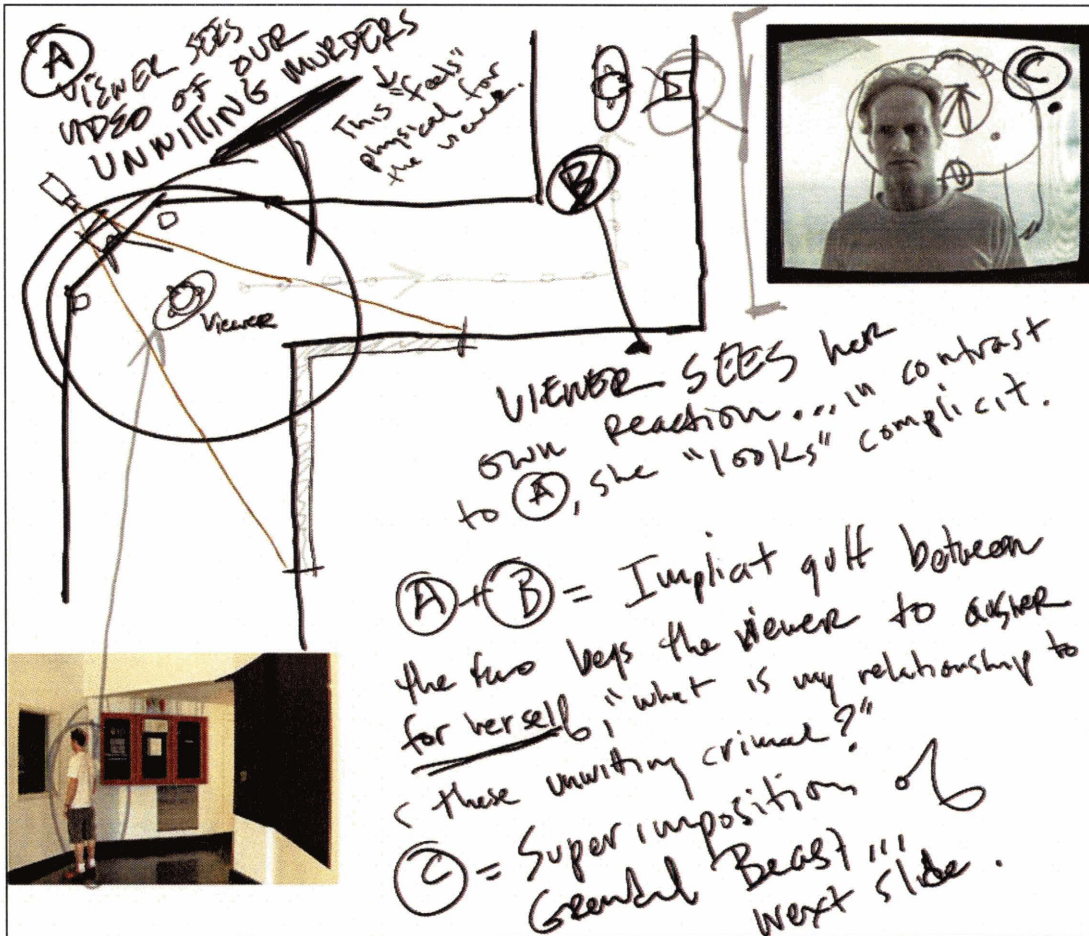 A
VIEWER SEES
VIDEO OF OUR
UNWITTING MURDERS
This "feels"
physical for
the viewer.
B
C
Viewer
VIEWER SEES her
own reaction... in contrast
to A, she "looks" complicit.
A + B = Implicit gulf between
the two begs the viewer to answer
for herself, "what is my relationship to
these unwitting crimal?"
C = Superimposition of
Grendal Beast...
next slide.